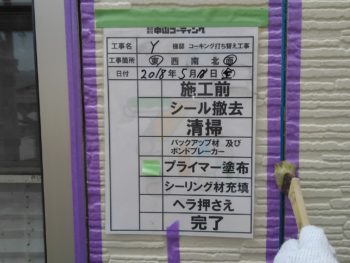 ㈱中山コーティング
工事名 Y 様邸 コーキング打ち替え工事
工事箇所 東 西 南 北 面
日付 2018年5月18日(金)
施工前
シール撤去
清掃
バックアップ材 及び
ボンドブレーカー
プライマー塗布
シーリング材充填
ヘラ押さえ
完了